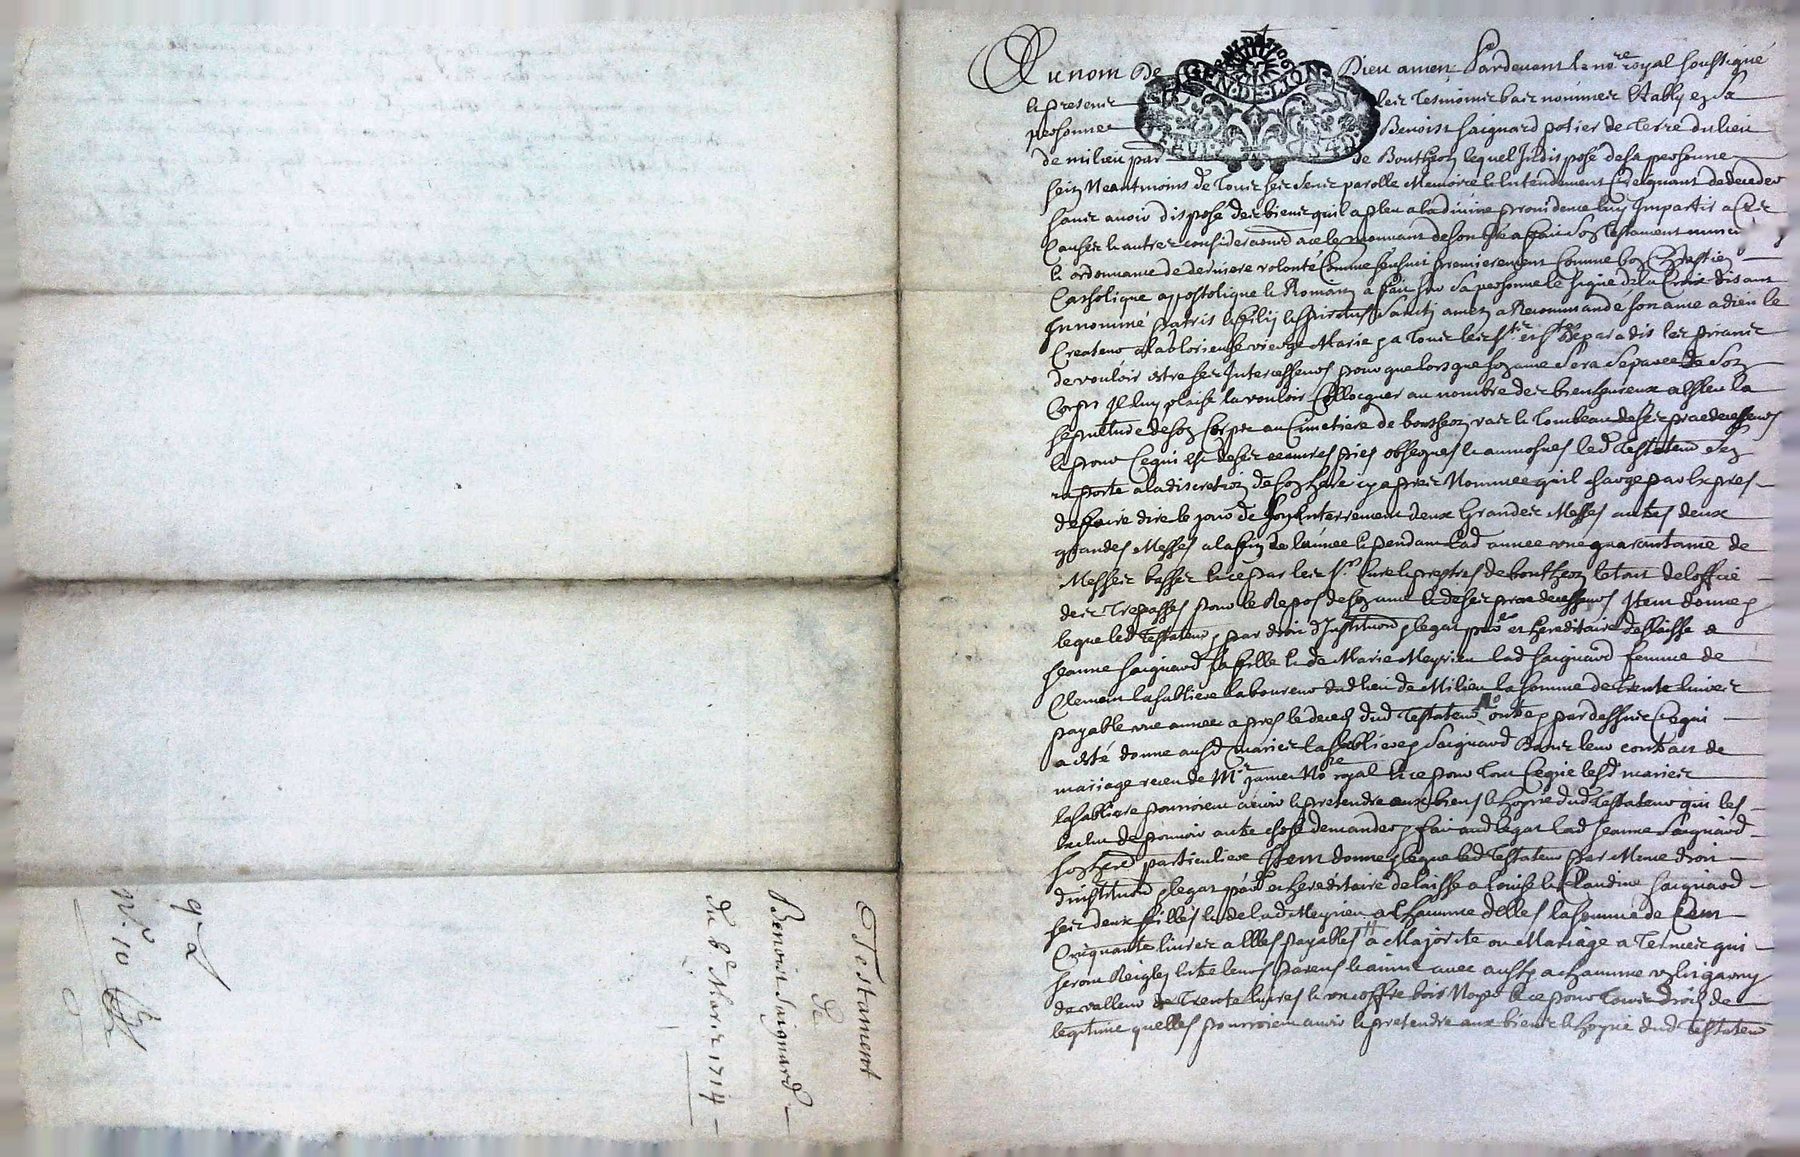 Au nom De Dieu amen Pardevant le no.re royal soussigné
et presents les Tesmoins bas nommes Estably en Sa
personne Benoist Saignard potier de Terre du lieu
de milieu par de Bouthéon lequel Indisposé de sa personne
sein Neantmoins de Tous ses sens parolle Memoire et Entendement Creignant de deceder
sans avoir disposé des biens quil a pleu a la divine providence luy Impartir a Ces
Causes et autres considerations a de son gré a faict Son Testament
et ordonnance de derniere volonté Comme sensuit premierement Comme bon Chrestien
Catholique appostolique et Romain a fait sur Sa personne le signe de la Croix disant
In nominé patris et filij et spiritus Sancti amen a Recommandé son ame a dieu le
Createur a la Glorieuse vierge Marie et a Tous les S.ts et S.tes de paradis les priant
de vouloir estre ses Intercesseurs pour que lors que son ame Sera Separee de Son
Corps Il luy plaise la vouloir Collocquer au nombre des bienheureux a esleu la
sepulture de son Corps au Cimetiere de bouthéon vers le Tombeau de ses praedecesseurs
et pour Ce qui est de ses œuvres pies obseques et aumosnes led Testateur sen
raporte a la discretion de son here cy apres Nommee quil charge par Expres
de faire dire le jour de son Enterrement deux Grandes Messes autres deux
grandes Messes a la fin de lannee et pendant lad annee une quarantaine de
Messes basses et ce par les S.rs Curé et prestres de bouthéon le tout de loffice
des Trepassés pour le Repos de son ame et de ses praedecesseurs Item donne
legue led Testateur par droit dInstitution legat par et hereditaire delaisse a
Jeanne Saignard sa fille et de Marie Meyrieu lad Saignard femme de
Clement Lasabliere laboureur dud lieu de Milieu la somme de Trente livres
payable une annee apres le deces dud Testateur outre par dessus Ce qui
a esté donné ausd maries Lasabliere Saignard Dans leur contract de
mariage receu de M.r no.re royal et ce pour Tout Ce que lesd maries
Lasabliere pourroient avoir et pretendre aux biens et hoyrie dud Testateur qui les
exclut de pouvoir autre chose demander faisant legat lad Jeanne Saignard
son here particuliere Item donne legue led Testateur par Meme droit
dinstitution legat par et hereditaire delaisse a Louise et Claudine Saignard
ses deux filles et de lad Meyrieu a Chacune delles la somme de Cent
Cinquante livres a Elles payables a Majorité ou Mariage a Termes qui
seront Reiglez Entre leurs parens et amis avec aussy a chacune
de valleur de Trente livres et un coffre bois Noyer et ce pour Tous droits de
legitime quelles pourroient avoir et pretendre aux biens et hoyrie dud Testateur
Testament
de
Benoist Saignard
du 6.e Mars 1714
9 2
N.o 10